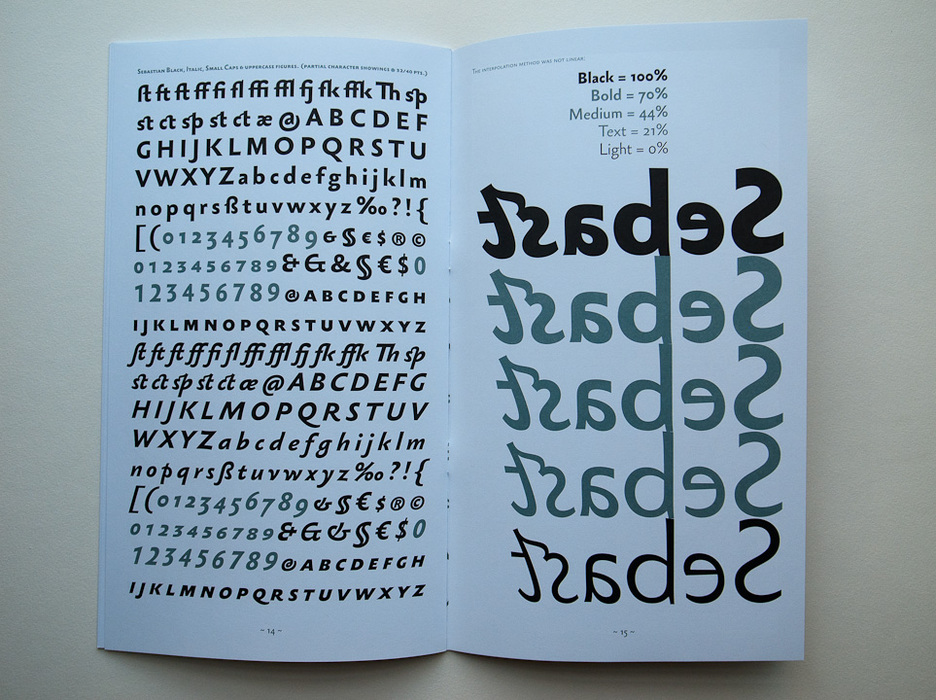 Sebastian Black, Italic, Small Caps & uppercase figures. (partial character showings @ 32/40 pts.)
ſt ft ft ff fi fl ffi ffl fj fk ffk Th sp
st ct sp st ct æ @ A B C D E F
G H I J K L M O P Q R S T U
V W X Y Z a b c d e f g h i j k l m
n o p q r s ß t u v w x y z ‰ ? ! {
[ ( 0 1 2 3 4 5 6 7 8 9 & § € $ ® ©
0 1 2 3 4 5 6 7 8 9 & & & § € $ 0
1 2 3 4 5 6 7 8 9 @ A B C D E F G H
I J K L M N O P Q R S T U V W X Y Z
ſt ft ft ff fi fl ffi ffl fj fk ffk Th sp
st ct sp st ct æ @ A B C D E F G
H I J K L M O P Q R S T U V
W X Y Z a b c d e f g h i j k l m
n o p q r s ß t u v w x y z ‰ ? ! {
[ ( 0 1 2 3 4 5 6 7 8 9 & § € $ ® ©
0 1 2 3 4 5 6 7 8 9 & & & § € $ 0
1 2 3 4 5 6 7 8 9 @ A B C D E F G H
I J K L M N O P Q R S T U V W X Y Z
~ 14 ~
The interpolation method was not linear:
Black = 100%
Bold = 70%
Medium = 44%
Text = 21%
Light = 0%
Sebast
Sebast
Sebast
Sebast
Sebast
~ 15 ~